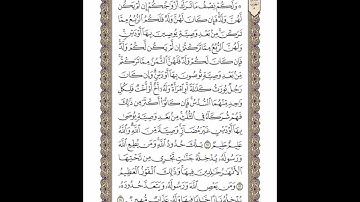 ۞ وَلَكُمْ نِصْفُ مَا تَرَكَ أَزْوَاجُكُمْ إِن لَّمْ يَكُن
لَّهُنَّ وَلَدٌ فَإِن كَانَ لَهُنَّ وَلَدٌ فَلَكُمُ الرُّبُعُ مِمَّا
تَرَكْنَ مِن بَعْدِ وَصِيَّةٍ يُوصِينَ بِهَا أَوْ دَيْنٍ
وَلَهُنَّ الرُّبُعُ مِمَّا تَرَكْتُمْ إِن لَّمْ يَكُن لَّكُمْ وَلَدٌ
فَإِن كَانَ لَكُمْ وَلَدٌ فَلَهُنَّ الثُّمُنُ مِمَّا تَرَكْتُم
مِّن بَعْدِ وَصِيَّةٍ تُوصُونَ بِهَا أَوْ دَيْنٍ وَإِن كَانَ
رَجُلٌ يُورَثُ كَلَالَةً أَوِ امْرَأَةٌ وَلَهُ أَخٌ أَوْ أُخْتٌ فَلِكُلِّ
وَاحِدٍ مِّنْهُمَا السُّدُسُ فَإِن كَانُوا أَكْثَرَ مِن ذَٰلِكَ
فَهُمْ شُرَكَاءُ فِي الثُّلُثِ مِن بَعْدِ وَصِيَّةٍ يُوصَىٰ
بِهَا أَوْ دَيْنٍ غَيْرَ مُضَارٍّ وَصِيَّةً مِّنَ اللَّهِ وَاللَّهُ
عَلِيمٌ حَلِيمٌ ١٢ تِلْكَ حُدُودُ اللَّهِ وَمَن يُطِعِ اللَّهَ
وَرَسُولَهُ يُدْخِلْهُ جَنَّاتٍ تَجْرِي مِن تَحْتِهَا
الْأَنْهَارُ خَالِدِينَ فِيهَا وَذَٰلِكَ الْفَوْزُ الْعَظِيمُ
١٣ وَمَن يَعْصِ اللَّهَ وَرَسُولَهُ وَيَتَعَدَّ حُدُودَهُ
يُدْخِلْهُ نَارًا خَالِدًا فِيهَا وَلَهُ عَذَابٌ مُّهِينٌ ١٤